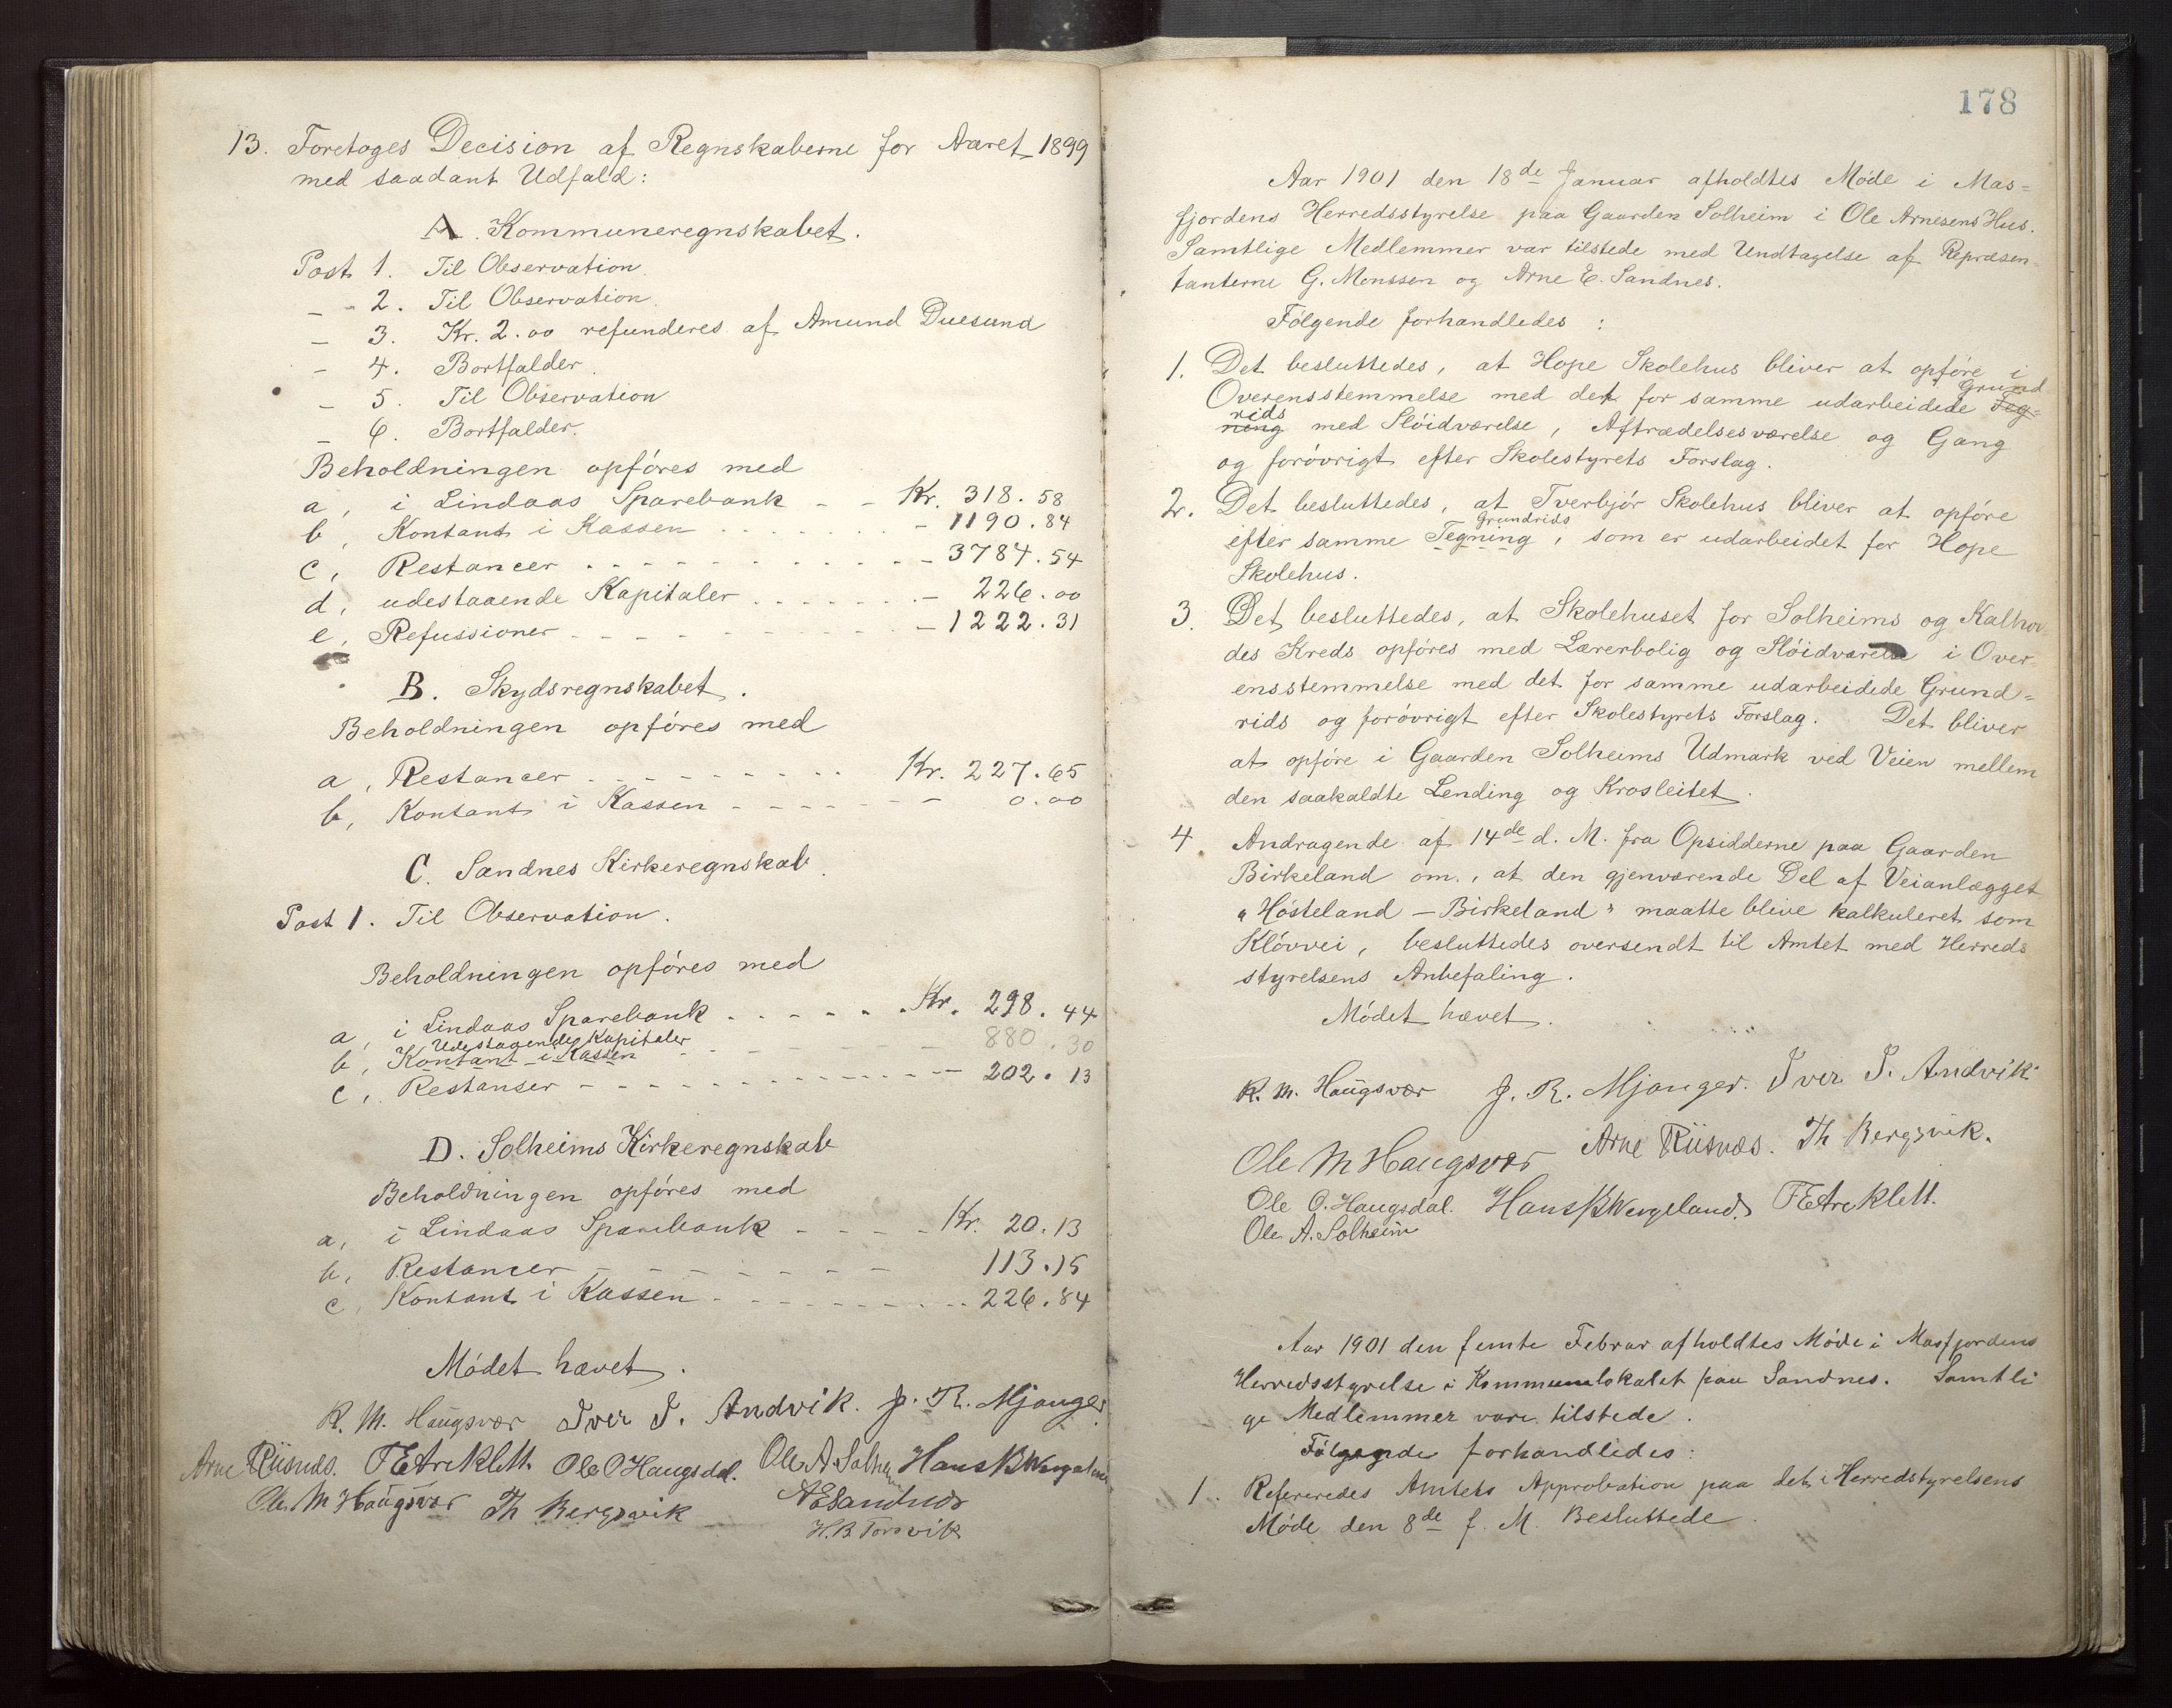 13. Foretoges Decision af Regnskaberne for Aaret 1899
med saadant Udfald:
A. Kommuneregnskabet.
Post 1. Til Observation.
- 2. Til Observation.
- 3. Kr. 2.00 refunderes af Amund Duesund
- 4. Bortfalder.
- 5. Til Observation
- 6. Bortfalder.
Beholdningen opföres med
a, i Lindaas Sparebank - - Kr. 318.58
b, Kontant i Kassen - 1190.84
c, Restancer - 3784.54
d, udestaaende Kapitaler - 226.00
e, Refussioner - 1222.31
B. Skydsregnskabet.
Beholdningen opföres med
a, Restancer Kr. 227.65
b, Kontant i Kassen - 0.00
C. Sandnes Kirkeregnskab.
Post 1. Til Observation.
Beholdningen opföres med
a, i Lindaas Sparebank Kr. 298.44
Udestaaende Kapitaler
b, Kontant i Kassen - 880.30
c, Restanser - 202.13
D. Solheims Kirkeregnskab
Beholdningen opföres med
a, i Lindaas Sparebank - - - - Kr. 20.13
b, Restancer 113.15
c, Kontant i Kassen 226.84
Mödet hævet.
R. M. Haugsvær Iver I. Andvik. J. R. Mjanger
Arne Riisnæs. T E Areklett Ole O Haugsdal. Ole A. Solheim Hans B Wergeland
Ole M Haugsvær Th Bergsvik A E Sandnes
H. B. Torsvik
178
Aar 1901 den 18de Januar afholdtes Möde i Mas=
fjordens Herredsstyrelse paa Gaarden Solheim i Ole Arnesens Hus.
Samtlige Medlemmer var tilstede med Undtagelse af Repræsen-
tanterne G. Monssen og Arne E. Sandnes.
Fölgende forhandledes :
1. Det besluttedes, at Hope Skolehus bliver at opföre i
Grund
Overensstemmelse med det for samme udarbeidede Teg=
rids
ning med Slöidværelse, Aftrædelsesværelse og Gang
og forövrigt efter Skolestyrets Forslag.
2. Det besluttedes, at Tverbjör Skolehus bliver at opföre
Grundrids
efter samme Tegning, som er udarbeidet for Hope
Skolehus.
3. Det besluttedes, at Skolehuset for Solheims og Kalhov
des Kreds opföres med Lærerbolig og Slöidværelse i Over-
ensstemmelse med det for samme udarbeidede Grund=
rids og forövrigt efter Skolestyrets Forslag. Det bliver
at opföre i Gaarden Solheims Udmark ved Veien mellem
den saakaldte Lending og Krosleitet.
4. Andragende af 14de d. M. fra Opsidderne paa Gaarden
Birkeland om, at den gjenværende Del af Veianlægget
"Hösteland - Birkeland" maatte blive kalkuleret som
Klövvei, besluttedes oversendt til Amtet med Herreds
styrelsens Anbefaling.
Mödet hævet.
R. M. Haugsvær J. R. Mjanger. Iver I. Andvik
Ole M Haugsvær Arne Riisnæs. Th Bergsvik.
Ole O. Haugsdal. Hans B Wergeland. T E Areklett.
Ole A. Solheim
Aar 1901 den femte Februar afholdtes Möde i Masfjordens
Herredsstyrelse i Kommunelokalet paa Sandnes. Samtli
ge Medlemmer vare tilstede.
Fölgende forhandledes:
1. Refereredes Amtets Approbation paa det i Herredstyrelsens
Möde den 8de f. M. Besluttede.